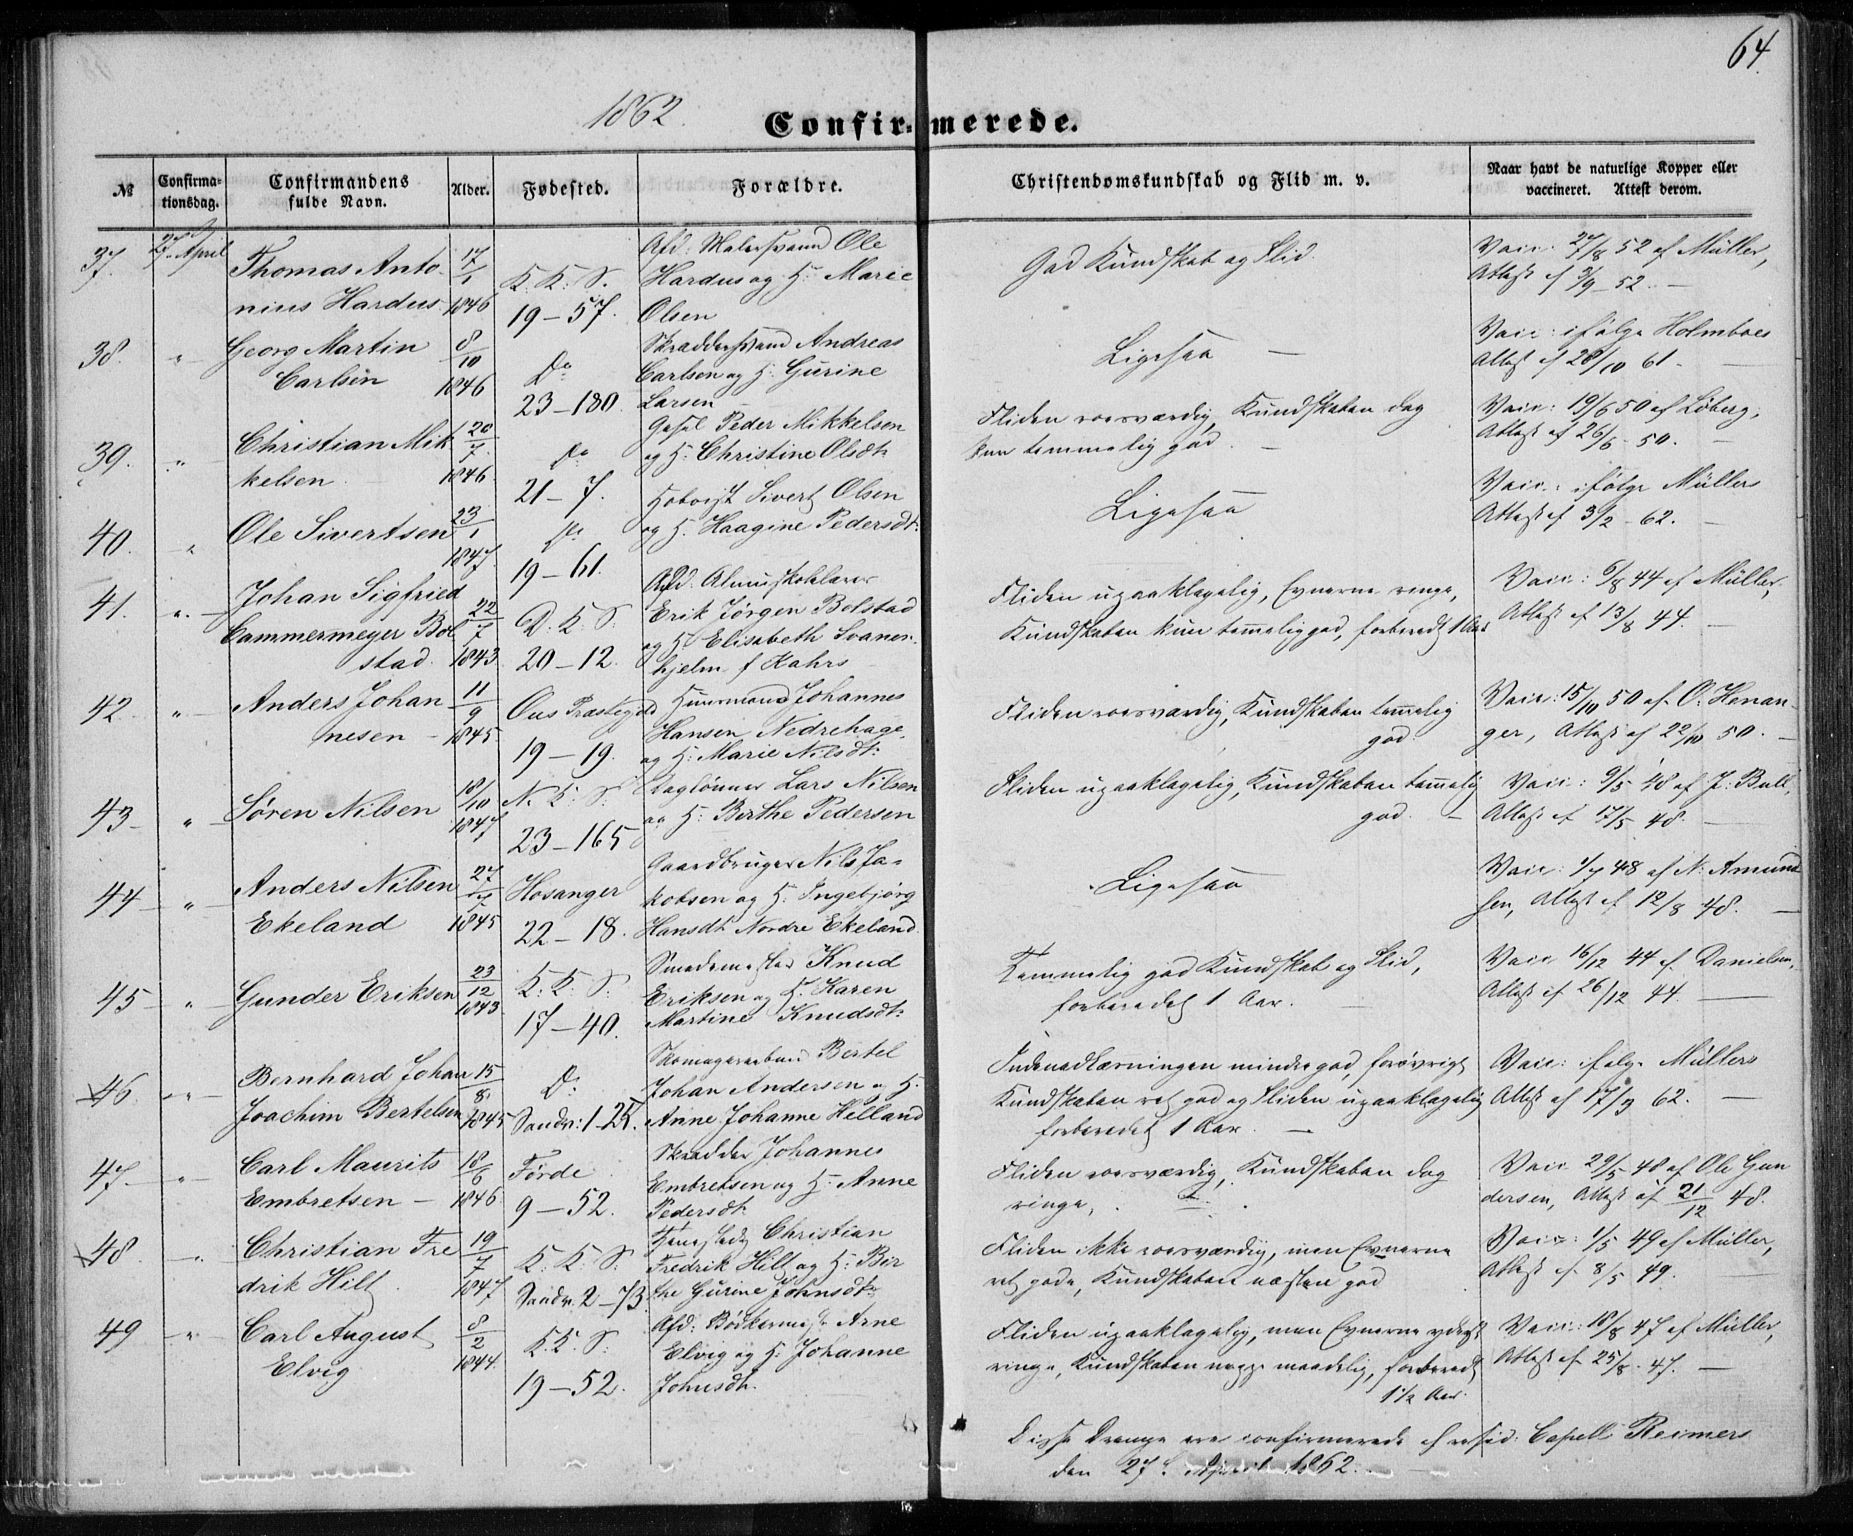 64.
1862.
Confirmerede.
№
Confirma-
tionsdag.
Confirmandens
fulde Navn.
Alder.
Fødested.
Forældre.
Christendomskundskab og Flid m. v.
Naar havt de naturlige Kopper eller
vaccineret. Attest derom.
37. 27. April
Thomas Anto-
nius Hardus
17/1 1846
K. K. S.
19-57.
Afd. Malersvend Ole
Hardus og H. Marie
Olsen
God Kundskab og Flid.
Vacc. 27/8 52 af Müller,
Attest af 3/9 - 52. -
38. "
Georg Martin
Carlsen
8/10 1846
Do
23-180.
Skræddersvend Andreas
Carlsen og H. Gurine
Larsen
Ligesaa -
Vacc: ifølge Holmboes
Attest af 28/10 61. -
39. "
Christian Mik
kelsen
20/7 1846
Do
21-7.
Peder Mikkelsen
og H. Christine Olsdt.
Fliden roesværdig, Kundskaben dog
kun temmelig god. -
Vacc: 19/6 50 af Løberg,
Attest af 26/6 - 50. -
40. "
Ole Sivertsen
23/1 1847.
Do
19-61.
Sivert Olsen
og H. Haagine Pedersdt:
Ligesaa
Vacc.: ifølge Müllers
Attest af 3/2 - 62. -
41. "
Johan Sigfried
Cammermeyer Bol
stad.
22/7 1843
D. K. S.
20-12.
Afd. Almueskolelærer
Erik Jørgen Bolstad
og H. Elisabeth Svanen-
hjelm f Kahrs
Fliden upaaklagelig, Evnerne ringe,
Kundskaben kun temelig god, forberedt 1 Aar
Vacc: 6/8 44 af Müller,
Attest af 13/8 44. -
42. "
Anders Johan
nesen -
11/9 1845.
Ous Præstegjeld
19-19.
Huusmand Johannes
Hansen Nedrehage
og H. Marie Nilsdt:
Fliden roesværdig, Kundskaben temelig
god.
Vacc: 15/10 50 af O. Henan-
ger, Attest af 22/10 50. -
43 "
Søren Nilsen
18/10 1847
N. K. S.
23-165
Daglønner Lars Nilsen
og H. Berthe Pedersen
Fliden upaaklagelig, Kundskaben temelig
god. -
Vacc: 9/5 48 af J. Bull,
Attest af 17/5 48. -
44 "
Anders Nilsen
Ekeland
27/7 1845
Hosanger
22-18.
Gaardbruger Nils Ja-
kobsen og H. Ingebjørg
Hansdt. Nordre Ekeland
Ligesaa
Vacc: 1/7 48 af N. Amund
sen, Attest af 12/8 48. -
45 "
Gunder Eriksen
23/12 1843
K. K. S.
17-40.
Smedemester Knud
Eriksen og H. Karen
Martine Knudsdt:
Temmelig god Kundskab og Flid,
forberedet 1 Aar.
Vacc 16/12 44 af Danielsen,
Attest af 26/12 44. -
46. "
Bernhard Johan
Joachim Bertelsen
15/8 1845
Do
Sandv: 1-25.
Bertel
Johan Andersen og H.
Anne Johanne Helland
Indenadlæsningen mindre god, forøvrigt
Kundskaben ret god og Fliden upaaklagelig
forberedet 1 Aar. -
Vacc: ifølge Müllers
Attest af 17/3 62. -
47. "
Carl Maurits
Embretsen -
18/6 1846
Førde
9-52.
Skrædder Johannes
Embretsen og H. Anne
Pedersdt.
Fliden roesværdig, Kundskaben dog
ringe.
Vacc 29/5 48 af Ole Gun
dersen, Attest af 21/12 48.
48. "
Christian Fre
drik Hilt
19/7 1847
K. K. S.
Sandv. 2-73.
Christian
Fredrik Hilt og H. Bir
the Gurine Johnsdt.
Fliden ikke roesværdig, men Evnerne
ret gode, Kundskaben næsten god
Vacc: 1/5 49 af Müller,
Attest af 8/5 49.
49 "
Carl August
Elvig
8/2 1844.
K. K. S.
19-52.
Afd: Bødkermest. Arne
Elvig og H. Johanne
Johnsdt.
Fliden upaaklagelig, men Evnerne yderst
ringe, Kundskaben neppe maadelig, forberedt
1½ Aar.
Vacc: 18/8 47 af Müller,
Attest af 25/8. 47. -
Disse Drenge ere confirmerede af resid. Capell. Reimers
den 27de April 1862. -